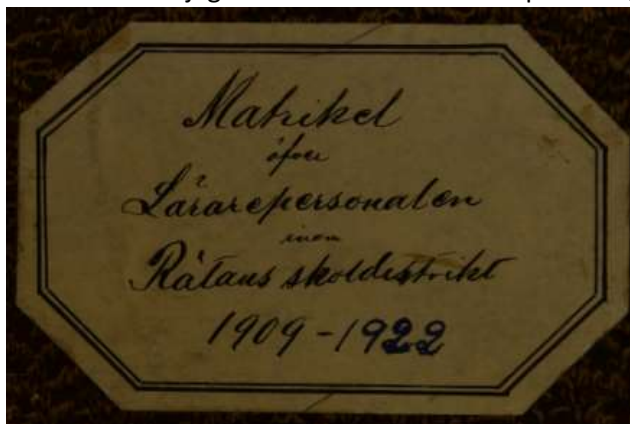 Matrikel
öfver
Lärarepersonalen
inom
Rätans skoldistrikt
1909-1922